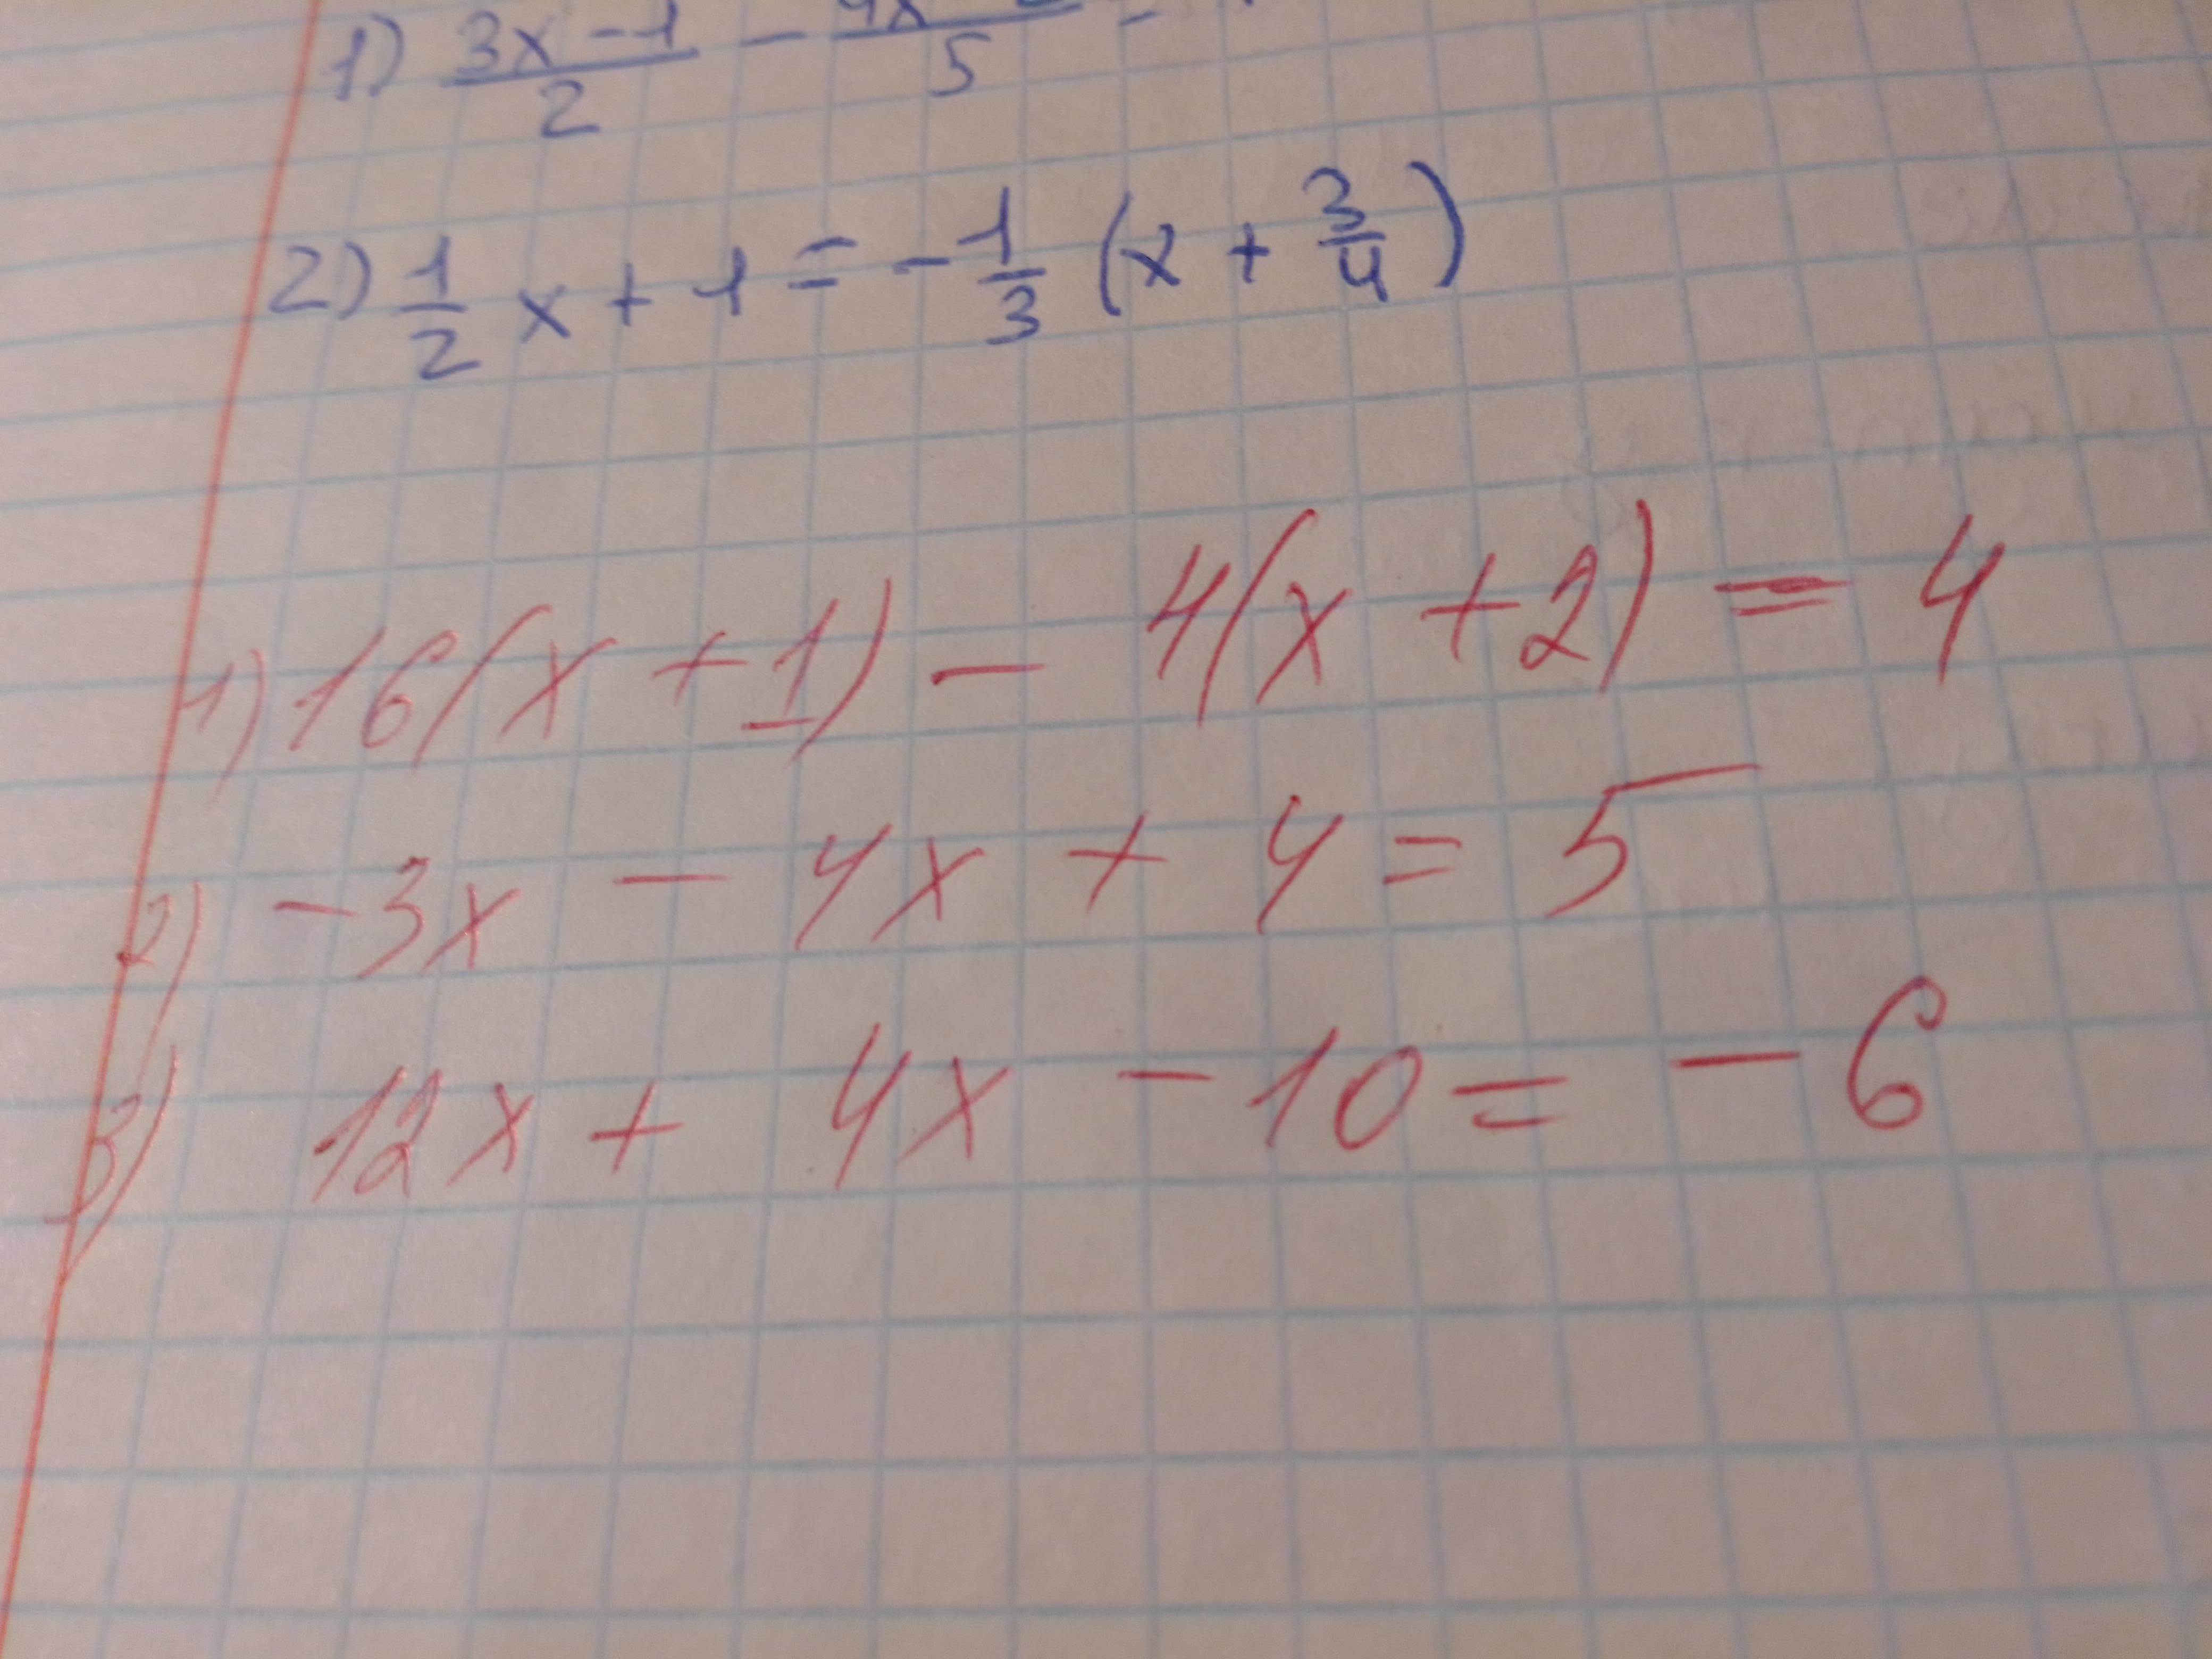 1) (3x-1)/2 - 4x/5 =
2) 1/2 x + 1 = - 1/3 (x + 3/4)
1) 16(x + 1) - 4(x + 2) = 4
2) - 3x - 4x + 4 = 5
3) 12x + 4x - 10 = - 6